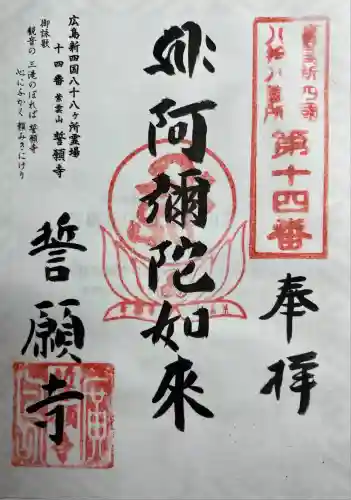 広島新四国
八十八ヶ所
第十四番
奉拝
阿彌陀如來
広島新四国八十八ヶ所霊場
十四番 紫雲山 誓願寺
御詠歌
観音の 三滝のぼれば 誓願寺
心にふかく 頼みきにけり
誓願寺